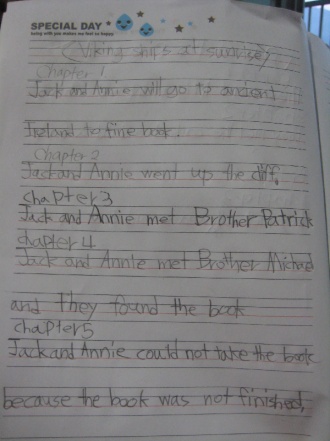 SPECIAL DAY
being with you makes me feel so happy
(Viking ships at sunrise)
Chapter 1
Jack and Annie will go to ancient
Ireland to fine book.
Chapter 2
Jack and Annie went up the cliff.
chapter3
Jack and Annie met Brother Patrick
chapter 4
Jack and Annie met Brother Michael
and they found the book
chapter5
Jack and Annie could not take the book
because the book was not finished.